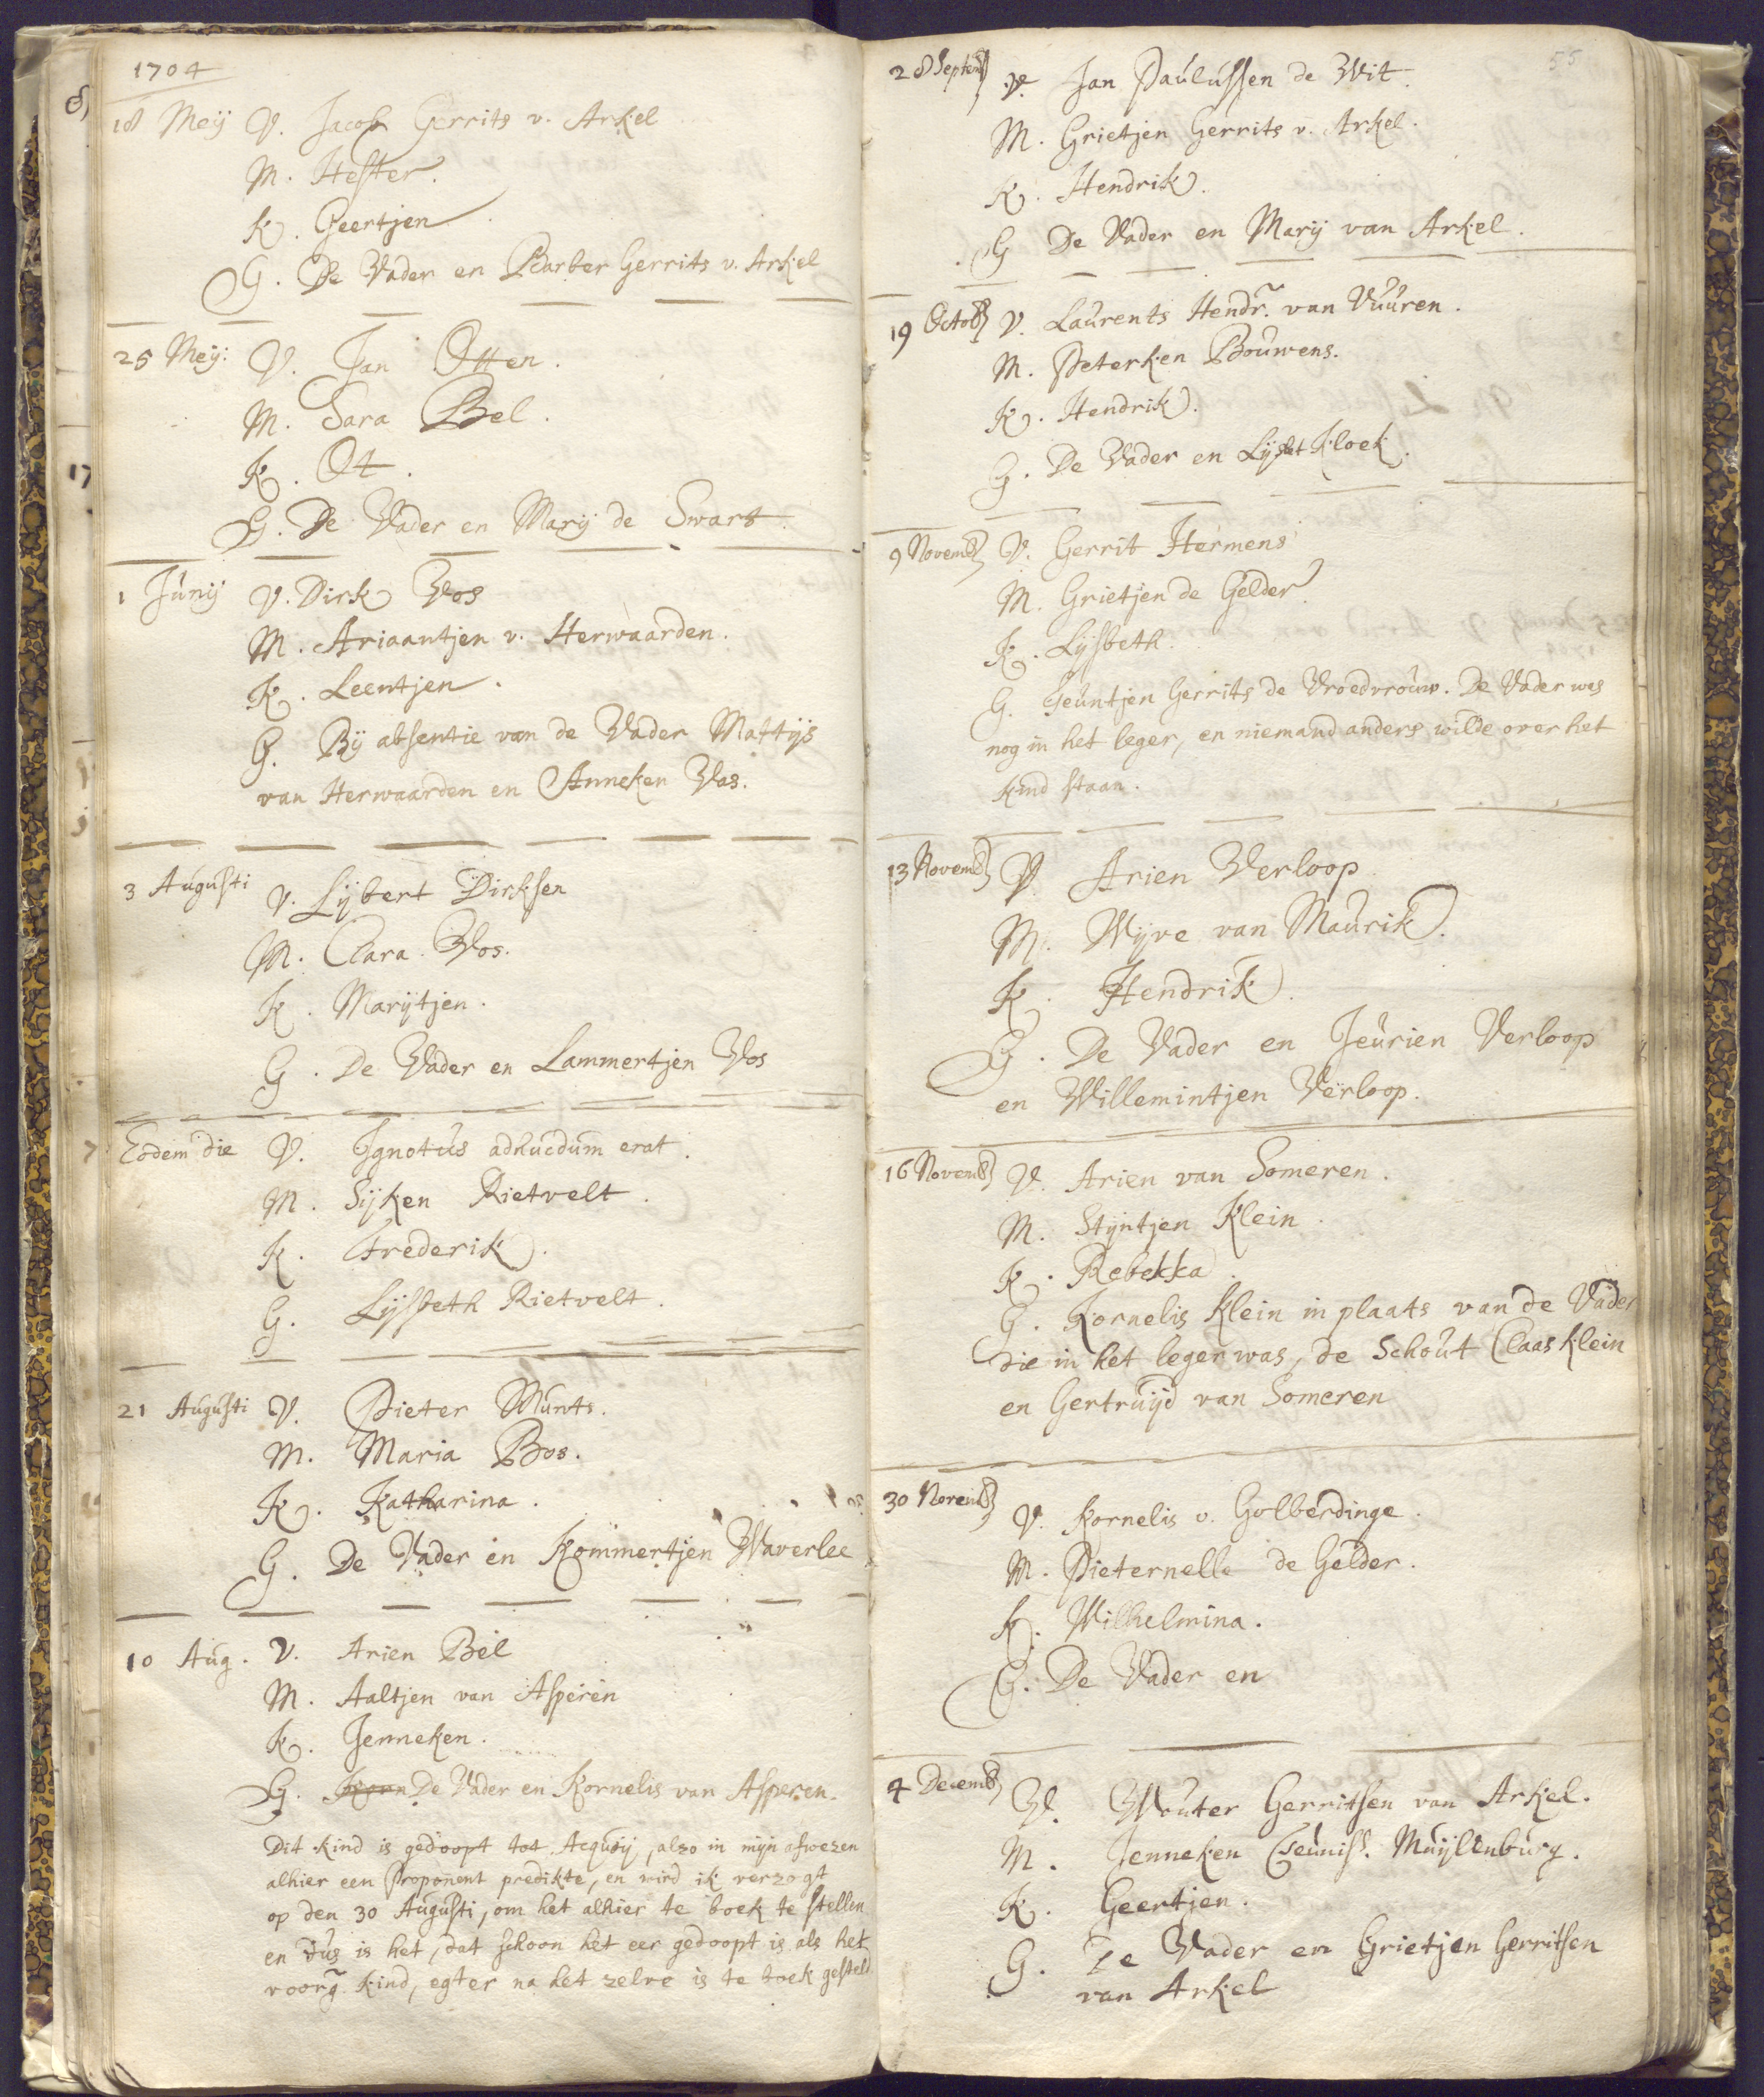 1704
18 Meij V. Jacob Gerrits v. Arkel
M. Hester.
K. Geertjen.
G. De Vader en Barber Gerrits v. Arkel
25 Meij: V. Jan Otten.
M. Sara Bel.
K. Ot.
G. De Vader en Marij de Swart.
1 Junij V. Dirk Vos
M. Ariaantjen v. Herwaarden.
K. Leentjen.
G. Bij absentie van de Vader Mattijs
van Herwaarden en Anneken Vas.
3 Augusti V. Lijbert Dirksen
M. Clara Vos.
K. Marijtjen.
G. De Vader en Lammertjen Vos
Eodem die V. Ignotus adhucdum erat.
M. Sijken Rietvelt.
K. Frederik.
G. Lijsbeth Rietvelt.
21 Augusti V. Pieter Munts.
M. Maria Bos.
K. Katharina.
G. De Vader en Kommertjen Waverlee
10 Aug. V. Arien Bel
M. Aaltjen van Asperen
K. Jenneken.
G. Korn De Vader en Kornelis van Asperen.
Dit kind is gedoopt tot Acquoij, alzo in mijn afwezen
alhier een Proponent predikte, en wird ik verzogt
op den 30 Augusti, om het alhier te boek te stellen
en dus is het, dat schoon het eer gedoopt is als het
voorg. kind, egter na het zelve is te boek gesteld
55
28 Septemb V. Jan Paulussen de Wit.
M. Grietjen Gerrits v. Arkel.
K. Hendrik.
G De Vader en Marij van Arkel.
19 Octob V. Laurents Hendr. van Vuuren.
M. Peterken Bouwens.
K. Hendrik.
G. De Vader en Lijsbet Kloek.
9 Novemb V. Gerrit Hermens
M. Grietjen de Gelder.
K. Lijsbeth.
G. Teuntjen Gerrits de Vroedvrouw. De Vader was
nog in het leger, en niemand anders wilde over het
kind staan.
13 Novemb V. Arien Verloop
M. Wijve van Maurik.
K. Hendrik.
G. De Vader en Jeurien Verloop
en Willemintjen Verloop.
16 Novemb V. Arien van Someren.
M. Stijntjen Klein.
K. Rebekka.
G. Kornelis Klein in plaats van de Vader
die in het leger was, de Schout Claas Klein
en Gertruijd van Someren
30 Novemb V. Kornelis v. Golberdinge.
M. Pieternelle de Gelder.
K. Wilhelmina.
G. De Vader en
4 Decemb V. Wouter Gerritsen van Arkel.
M. Jenneken Teuniss. Muijlenburg.
K. Geertjen.
G. De Vader en Grietjen Gerritsen
van Arkel